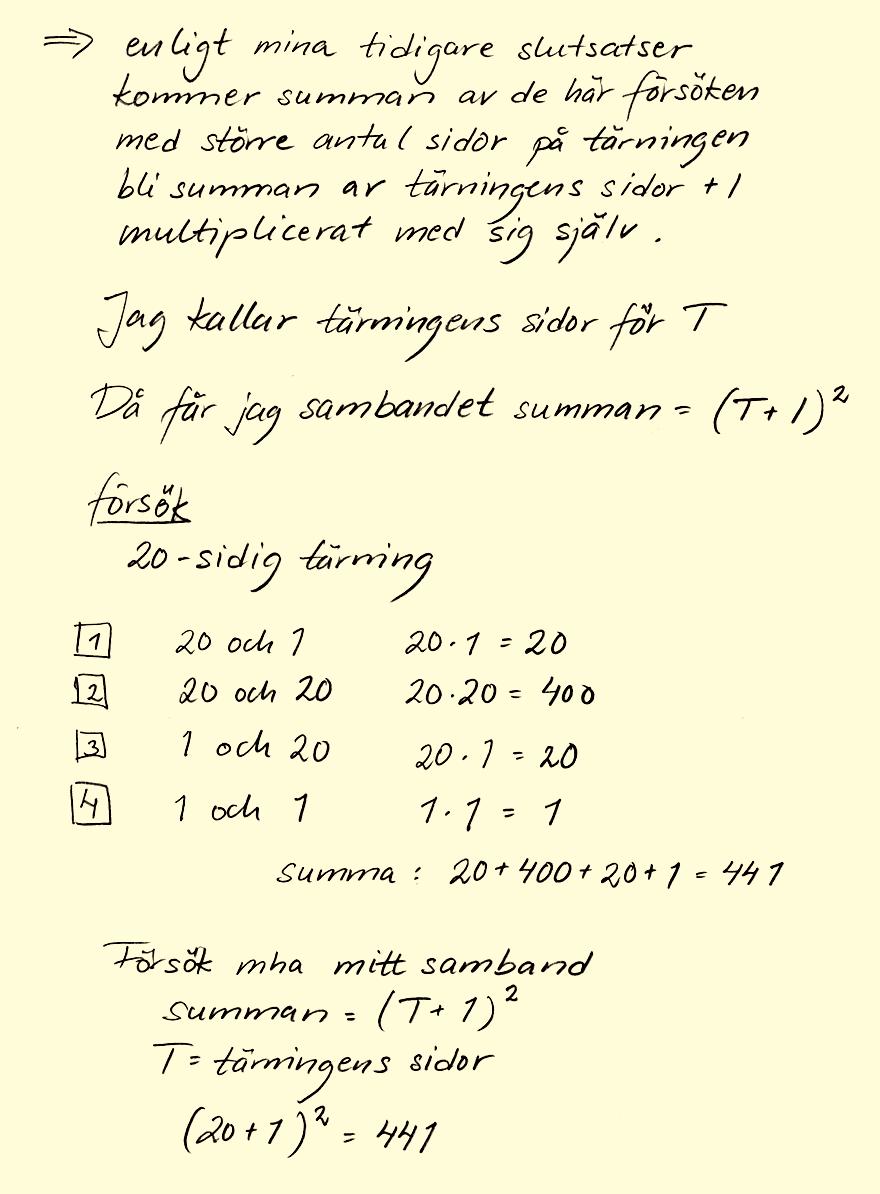 ⇒ enligt mina tidigare slutsatser
kommer summan av de här försöken
med större antal sidor på tärningen
bli summan av tärningens sidor + 1
multiplicerat med sig själv.
Jag kallar tärningens sidor för T
Då får jag sambandet summan = (T+1)²
försök
20-sidig tärning
1 20 och 1 20·1 = 20
2 20 och 20 20·20 = 400
3 1 och 20 20·1 = 20
4 1 och 1 1·1 = 1
summa: 20+400+20+1 = 441
Försök mha mitt samband
summan = (T+1)²
T = tärningens sidor
(20+1)² = 441